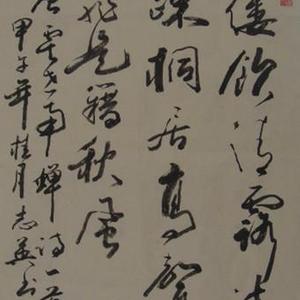 緌飲清露流
疎桐居高聲
非是藉秋風
虞世南蟬詩一首
甲子年桂月志英书